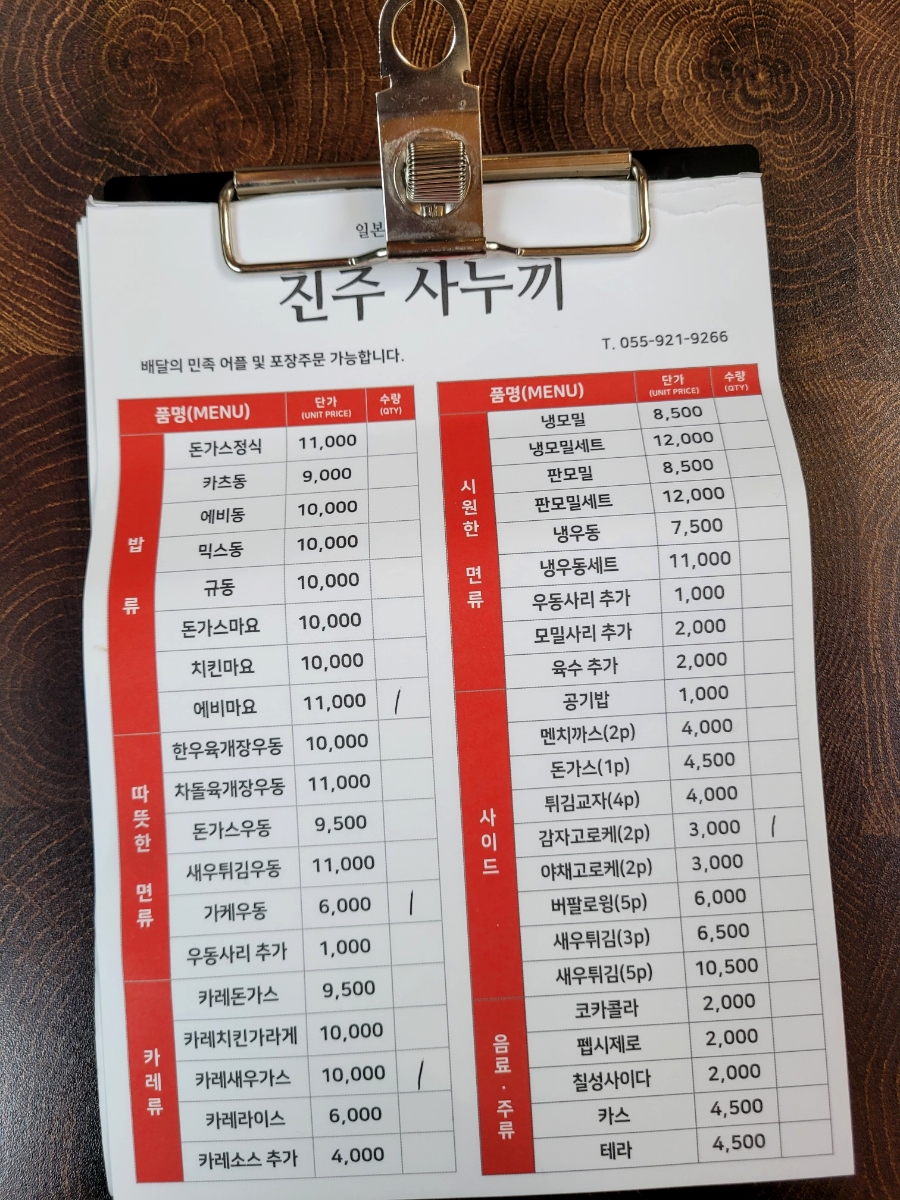 일본
진주 사누끼
T. 055-921-9266
배달의 민족 어플 및 포장주문 가능합니다.
품명(MENU) 단가 (UNIT PRICE) 수량 (QTY)
밥류
돈가스정식 11,000
카츠동 9,000
에비동 10,000
믹스동 10,000
규동 10,000
돈가스마요 10,000
치킨마요 10,000
에비마요 11,000 /
따뜻한 면류
한우육개장우동 10,000
차돌육개장우동 11,000
돈가스우동 9,500
새우튀김우동 11,000
가케우동 6,000 /
우동사리 추가 1,000
카레류
카레돈가스 9,500
카레치킨가라게 10,000
카레새우가스 10,000 /
카레라이스 6,000
카레소스 추가 4,000
품명(MENU) 단가 (UNIT PRICE) 수량 (QTY)
시원한 면류
냉모밀 8,500
냉모밀세트 12,000
판모밀 8,500
판모밀세트 12,000
냉우동 7,500
냉우동세트 11,000
우동사리 추가 1,000
모밀사리 추가 2,000
육수 추가 2,000
사이드
공기밥 1,000
멘치까스(2p) 4,000
돈가스(1p) 4,500
튀김교자(4p) 4,000
감자고로케(2p) 3,000 /
야채고로케(2p) 3,000
버팔로윙(5p) 6,000
새우튀김(3p) 6,500
새우튀김(5p) 10,500
음료·주류
코카콜라 2,000
펩시제로 2,000
칠성사이다 2,000
카스 4,500
테라 4,500